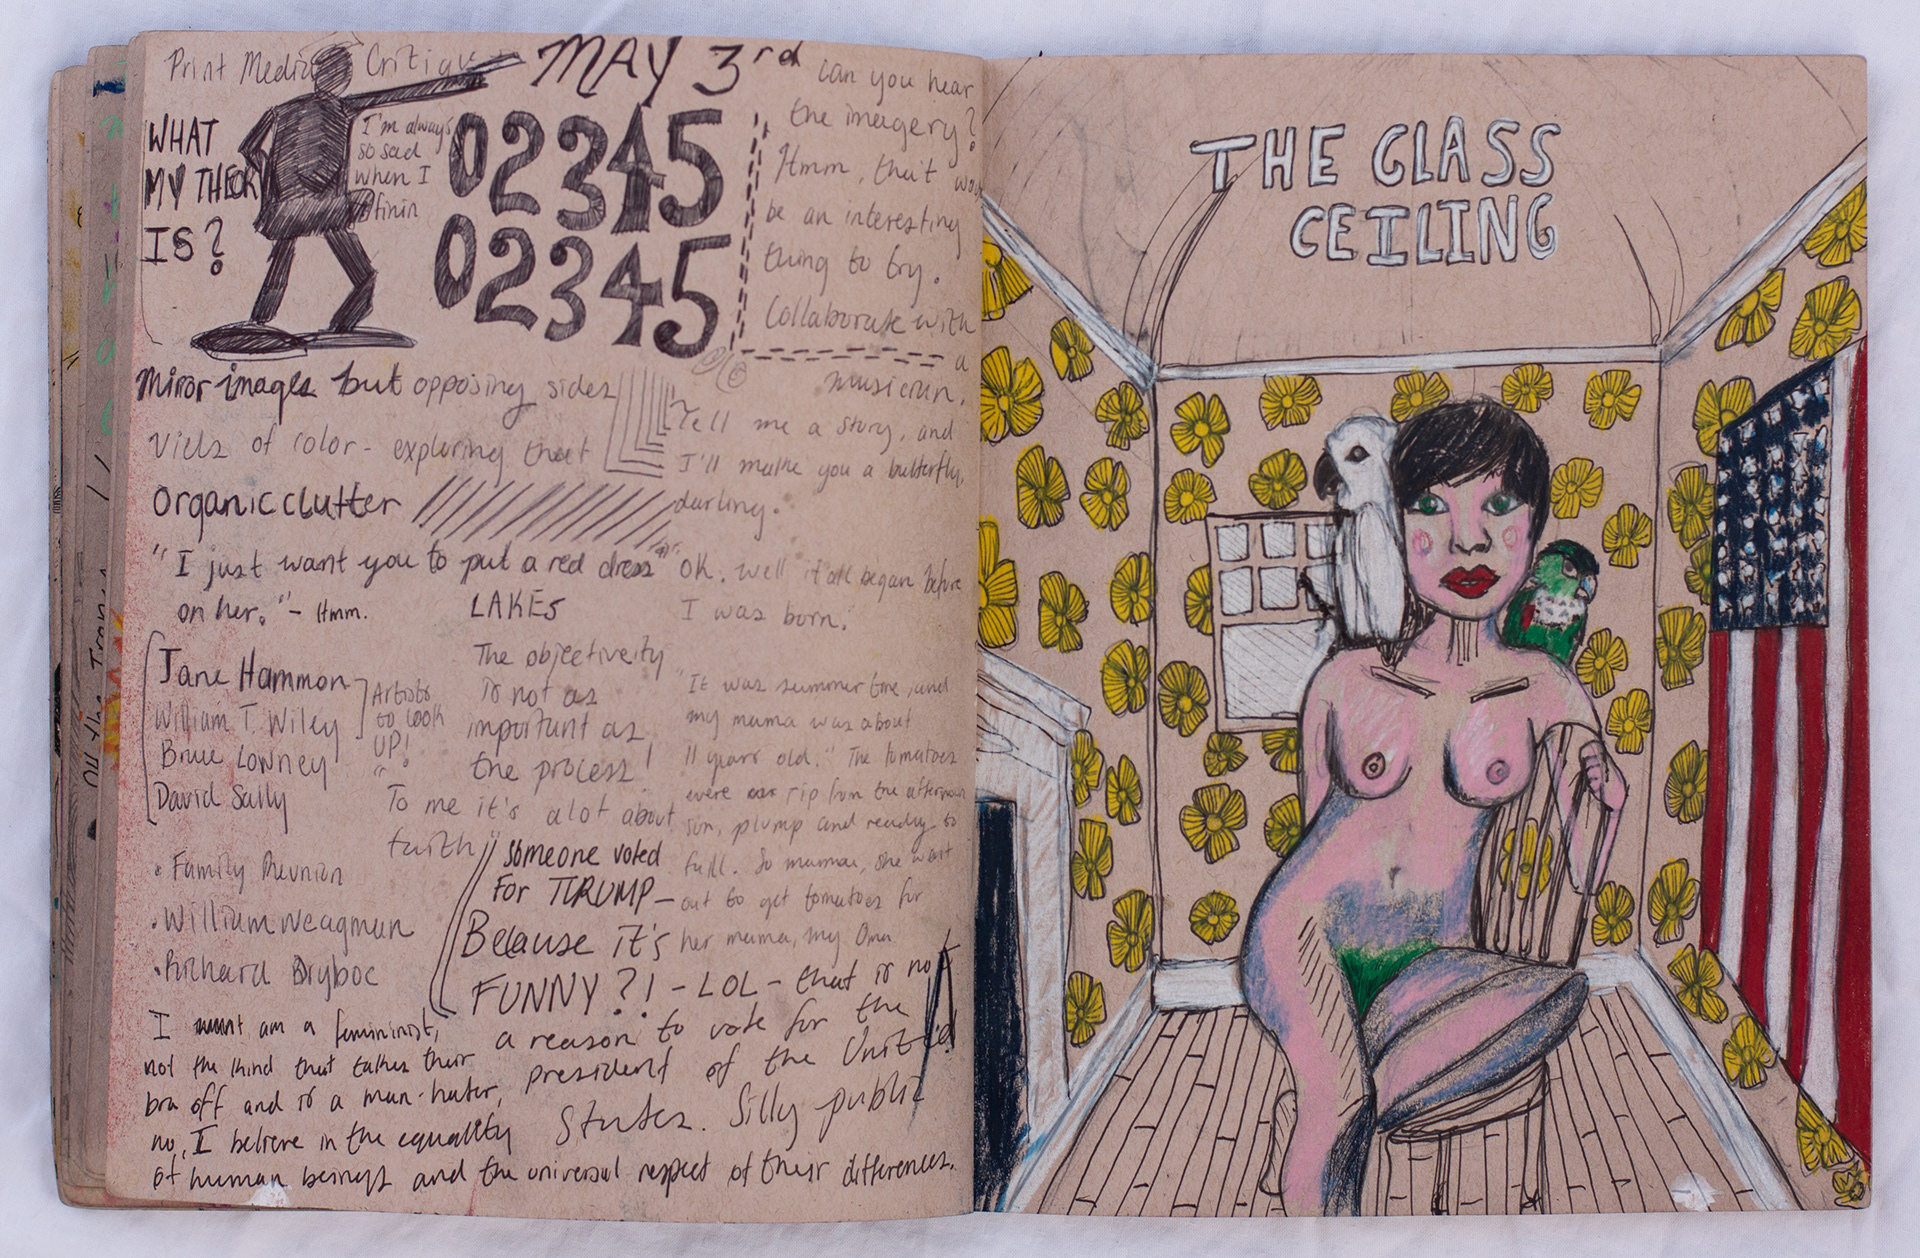 Print Media Critique
MAY 3rd
WHAT
MY THECK
IS?
I'm always
so sad
when I
finin
02345
02345
can you hear
the imagery?
Hmm, that
be an interesting
thing to try.
Collaborate with
a
musician.
Mirror images but opposing sides
Viels of color - exploring that
Organic clutter
"I just want you to put a red dress"
on her." - Hmm.
Tell me a story, and
I'll make you a butterfly,
darling.
OK. Well it all began before
I was born."
LAKES
Jane Hammon
William T. Wiley
Bruce Lowney
David Sally
Artists
to look
UP!
The objectiveity
is not as
important as
the process!
To me it's a lot about
faith
"It was summer time, and
my mama was about
11 years old." The tomatoes
were rip from the afternoon
sun, plump and ready to
fall. So mamma, she went
out to get tomatoes for
her mama, my Oma
• Family Reunion
• William Weagman
• Richard
Someone voted
For TRUMP -
Because it's
FUNNY?! - LOL - that is not
a reason to vote for the
president of the United
States. Silly public
I am a femininist,
not the kind that takes their
bra off and is a man-hater,
no, I believe in the equality
of human beings and the universal respect of their differences.
THE GLASS
CEILING